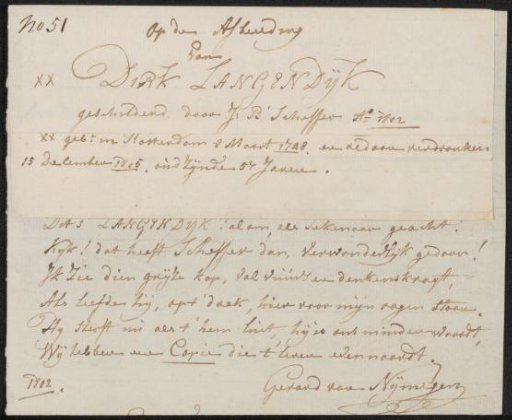 No 51
Op de Afbeelding
Van
XX DIRK LANGENDYK
geschilderd door J: B: Scheffer Ao. 1802
XX geb: in Rotterdam 8 Maart 1748. en aldaar verdronken
15 december 1805. oud zynde 57 Jaren.
Dit's LANGENDYK! alom, als tekenaar geacht.
Kyk! dat heeft Scheffer dan, verwonderlyk gedaan!
Ik zie dien gryze kop, vol vuur en denkenskragt,
Als leefde hy, op 't doek, hier voor myn oogen staan.
Hy sterft nu als 't hem lust, hy is ons minder waardt,
Wy hebben een Copie die 't leven evennaardt.
1802.
Gerard van Nymegen